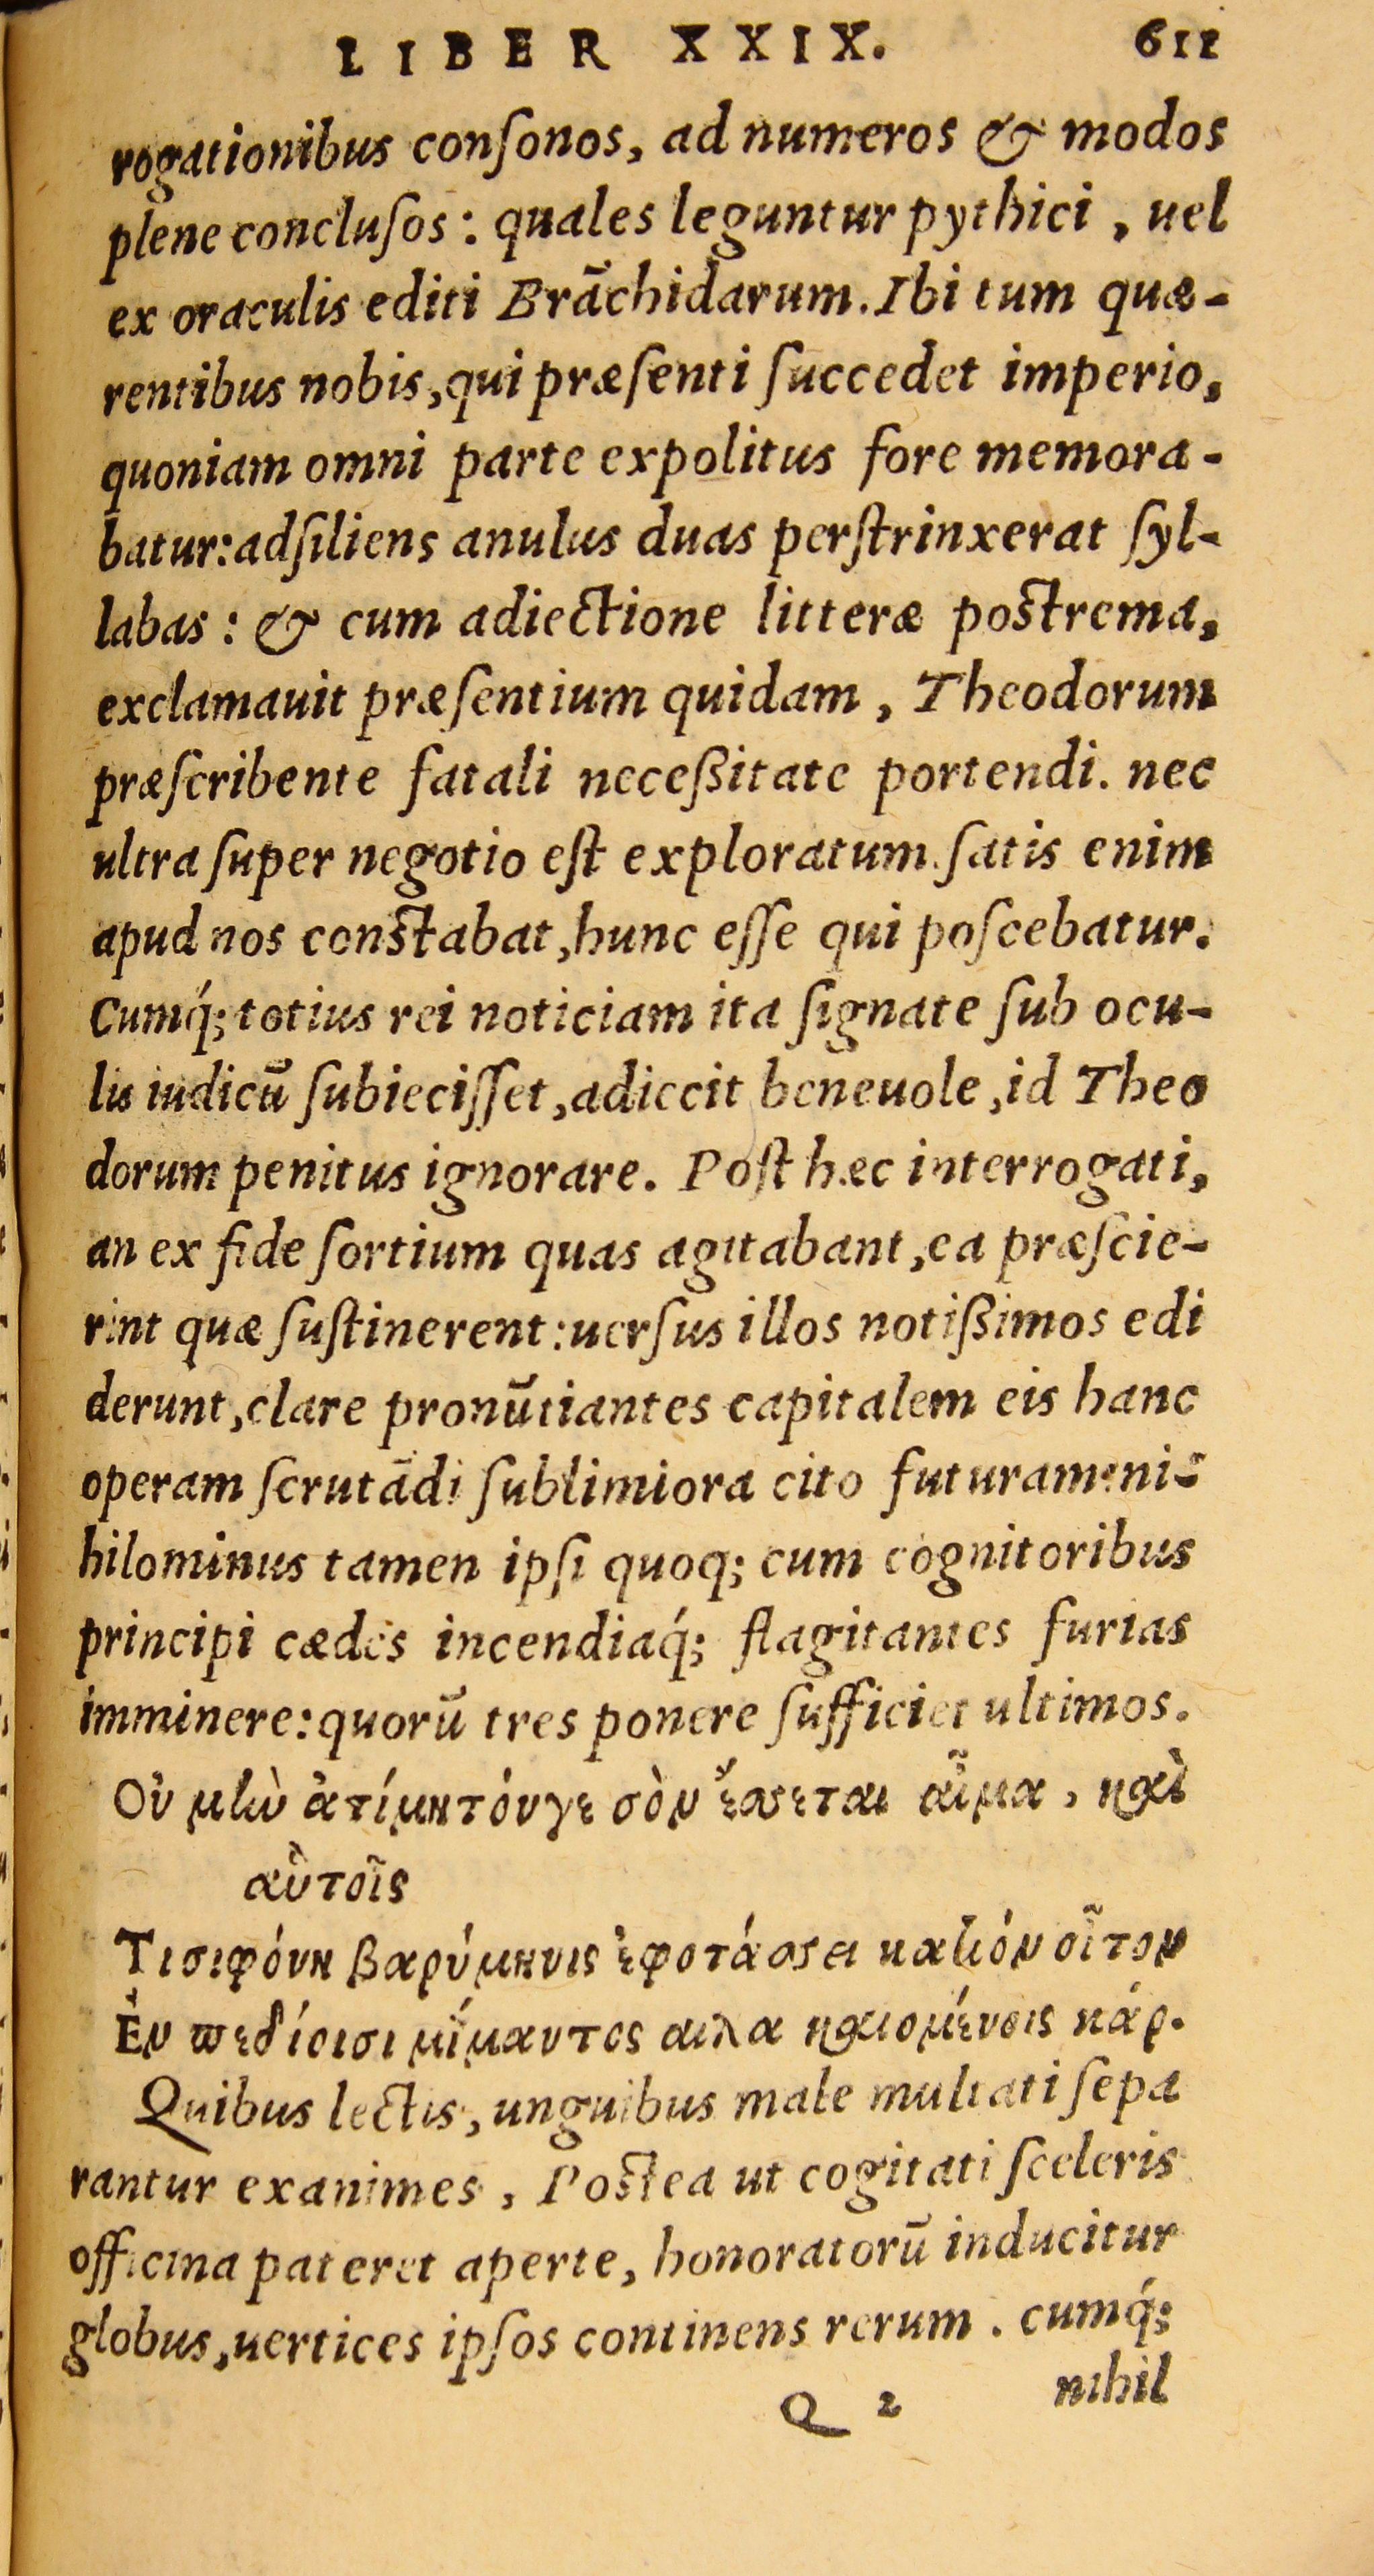 LIBER XXIX. 611
rogationibus conſonos, ad numeros & modos
plene concluſos: quales leguntur pythici, uel
ex oraculis editi Brãchidarum. Ibi tum quæ-
rentibus nobis, qui præſenti ſuccedet imperio,
quoniam omni parte expolitus fore memora-
batur: adſiliens anulus duas perſtrinxerat ſyl-
labas: & cum adiectione litteræ poſtrema,
exclamauit præſentium quidam, Theodorum
præſcribente fatali neceßitate portendi. nec
ultra ſuper negotio eſt exploratum. ſatis enim
apud nos conſtabat, hunc eſſe qui poſcebatur.
Cumq́; totius rei noticiam ita ſignate ſub ocu-
lis iudicũ ſubieciſſet, adiecit beneuole, id Theo
dorum penitus ignorare. Poſt hæc interrogati,
an ex fide ſortium quas agitabant, ea præſcie-
rint quæ ſuſtinerent: uerſus illos notißimos edi
derunt, clare pronũtiantes capitalem eis hanc
operam ſcrutãdi ſublimiora cito futuram: ni-
hilominus tamen ipſi quoq; cum cognitoribus
principi cædes incendiaq́; flagitantes furias
imminere: quorũ tres ponere ſufficiet ultimos.
Οὐ μὲν ἀτίμητόνγε σὸν ἔσσεται αἷμα, καὶ
αὐτοῖς
Τισιφόνη βαρύμηνις ἐφοτάσσει κακὸν οἶτον
Ἐν πεδίοισι μίμαντος αιλα καιομένοις κάρ.
Quibus lectis, unguibus male multati ſepa
rantur exanimes, Poſtea ut cogitati ſceleris
officina pateret aperte, honoratorũ inducitur
globus, uertices ipſos continens rerum. cumq́;
Q 2 nihil